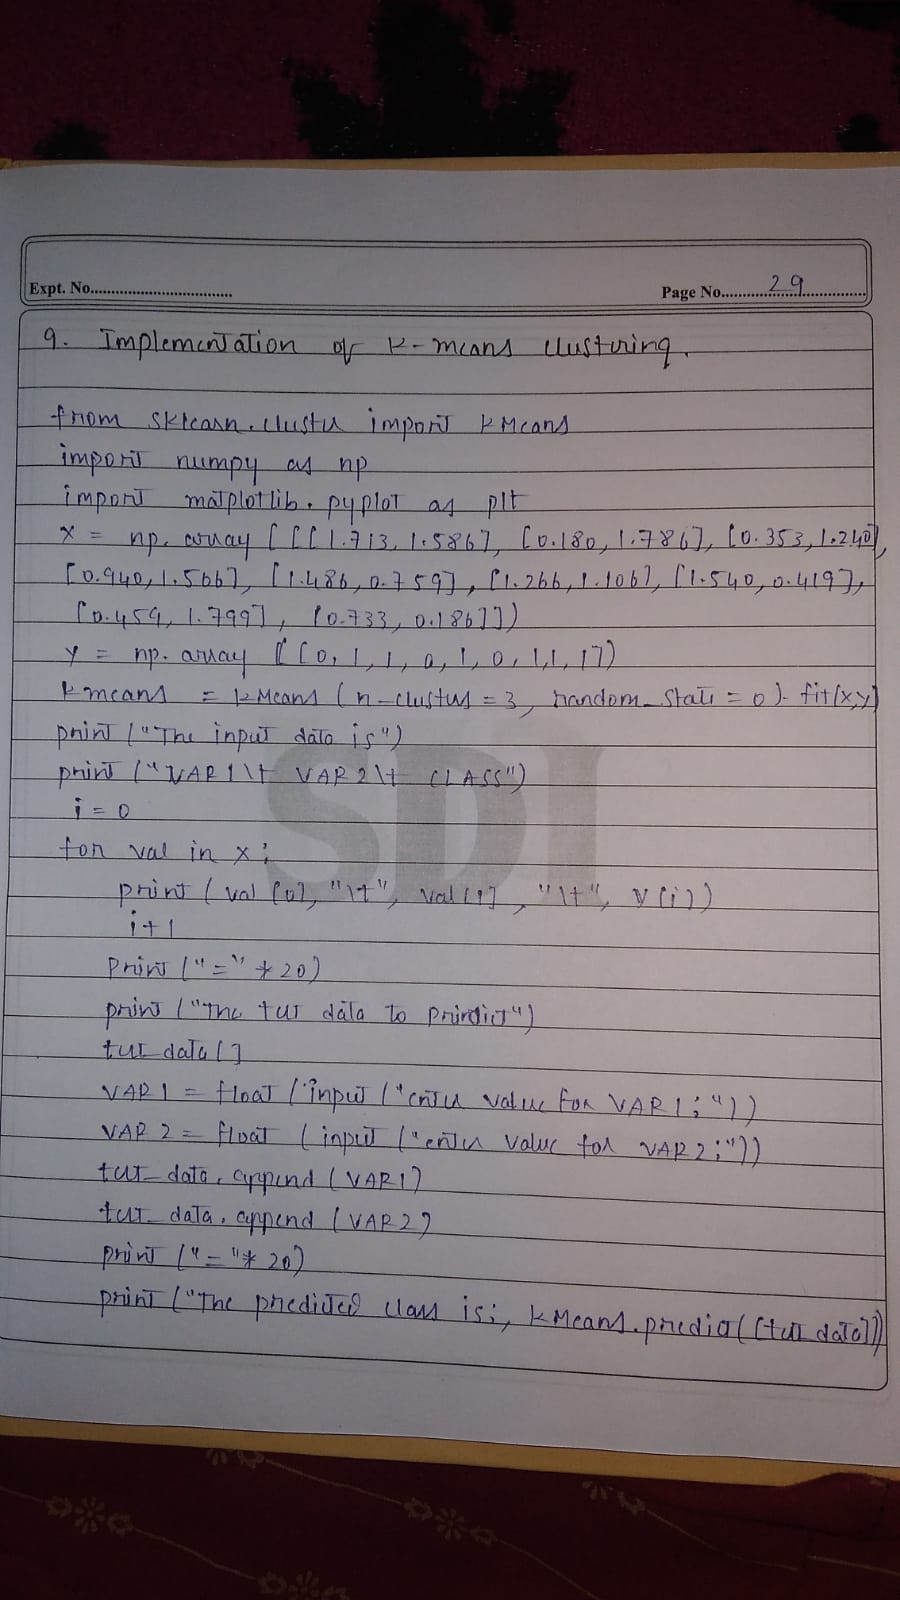 Expt. No.................................
Page No.......29.......
9. Implementation of K-means clustering.
from sklearn.cluster import KMeans
import numpy as np
import matplotlib.pyplot as plt
X = np.array [[[1.713, 1.586], [0.180, 1.786], [0.353, 1.240],
[0.940, 1.566], [1.486, 0.759], [1.266, 1.106], [1.540, 0.419],
[0.459, 1.799], [0.733, 0.186]])
Y = np.array ([0, 1, 1, 0, 1, 0, 1, 1, 1])
kmeans = KMeans (n-clusters = 3, random_state = 0). fit(x,y)
print ("The input data is")
print ("VAR1\t VAR2\t CLASS")
i = 0
for val in x:
print (val [0], "\t", val [1], "\t", y(i))
i+1
Print ("=" * 20)
print ("The test data to predict")
test data []
VAR1 = float (input ("enter value for VAR1;"))
VAR2 = float (input ("enter value for VAR2;"))
test_data. append (VAR1)
test_data. append (VAR2)
print ("="* 20)
print ("The predicted class is:, KMeans.predict([test data])
SDI